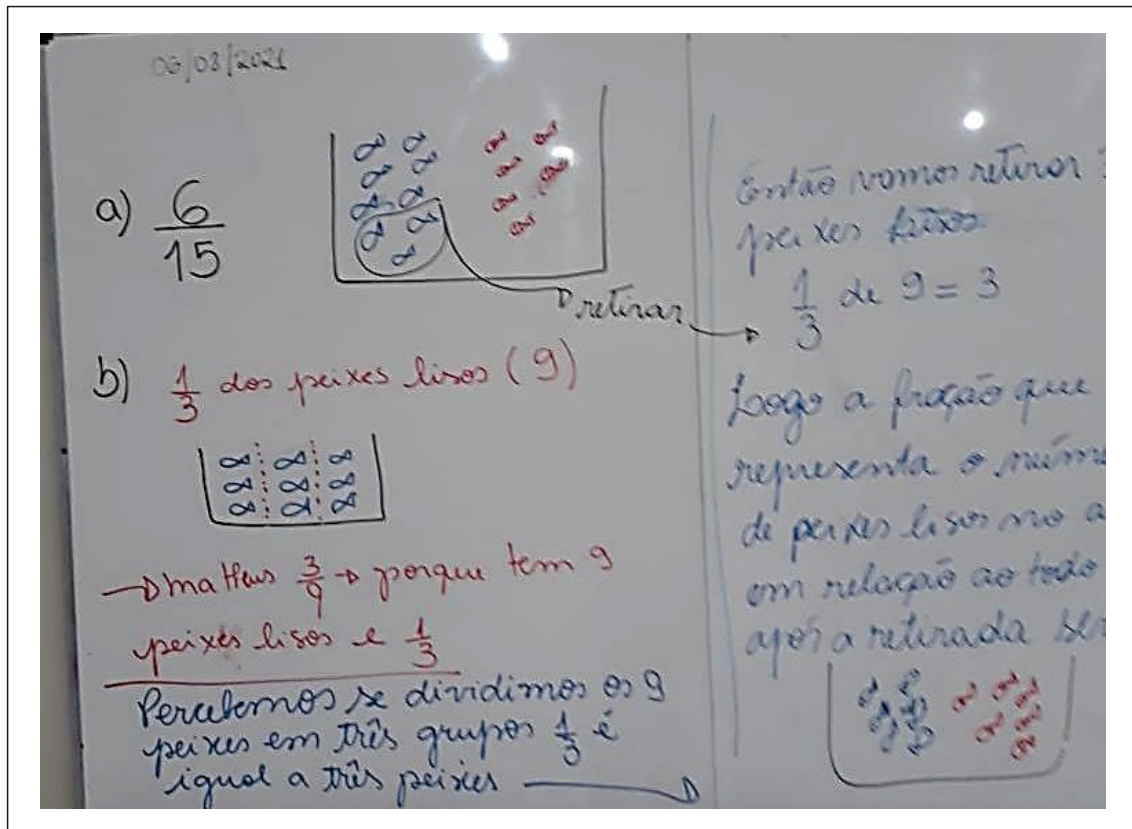 06/08/2021
a) 6/15
retirar
b) 1/3 dos peixes lisos (9)
→ matheus 3/9 → porque tem 9
peixes lisos e 1/3
Percebemos se dividimos os 9
peixes em três grupos 1/3 é
igual a três peixes
Então vamos retirar
peixes lisos
1/3 de 9 = 3
Logo a fração que
representa o núme
de peixes lisos no a
em relação ao todo
após a retirada se